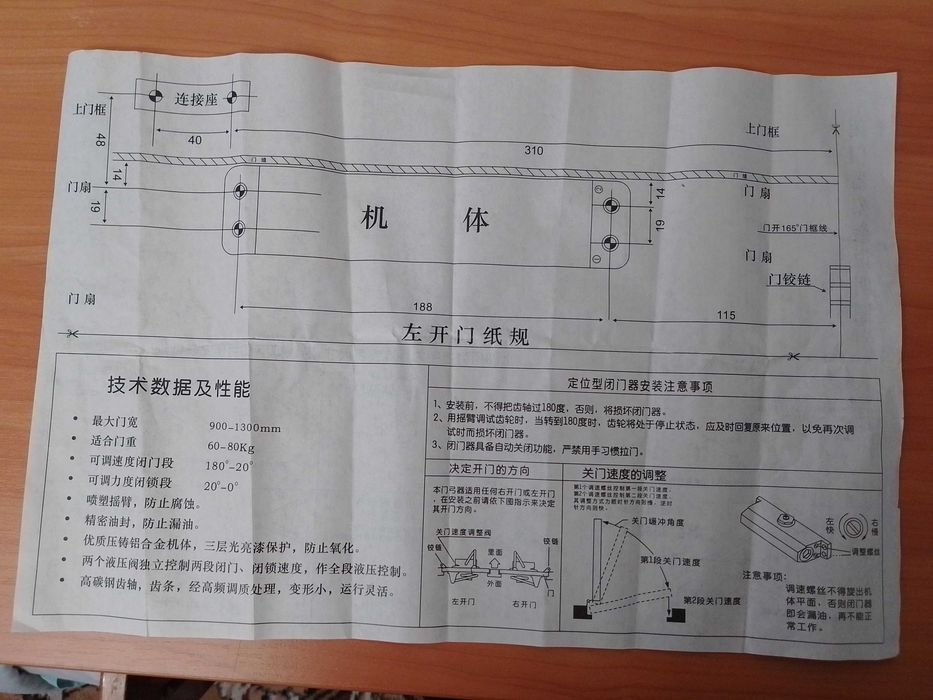 连接座
上门框
上门框
40
48
310
门缝
门缝
14
14
门扇
门扇
19
19
②
①
机 体
门开165°门框线
门扇
门铰链
门扇
188
115
左开门纸规
技术数据及性能
• 最大门宽 900-1300mm
• 适合门重 60-80Kg
• 可调速度闭门段 180°-20°
• 可调力度闭锁段 20°-0°
• 喷塑摇臂，防止腐蚀。
• 精密油封，防止漏油。
• 优质压铸铝合金机体，三层光亮漆保护，防止氧化。
• 两个液压阀独立控制两段闭门、闭锁速度，作全段液压控制。
• 高碳钢齿轴，齿条，经高频调质处理，变形小，运行灵活。
定位型闭门器安装注意事项
1、安装前，不得把齿轴过180度，否则，将损坏闭门器。
2、用摇臂调试齿轮时，当转到180度时，齿轮将处于停止状态，应及时回复原来位置，以免再次调
试时而损坏闭门器。
3、闭门器具备自动关闭功能，严禁用手习惯拉门。
决定开门的方向
本门弓器适用任何右开门或左开门
，在安装之前请依下图指示来决定
其开门方向。
关门速度调整阀
铰链
铰链
里面
外面
门
左开门
右开门
关门速度的调整
第1个调速螺丝控制第一段关门速度，
第2个调速螺丝控制第二段关门速度，
其调整方式为顺时针方向则慢，逆时
针方向则快。
关门缓冲角度
第1段关门速度
第2段关门速度
左快
右慢
调整螺丝
注意事项：
调速螺丝不得旋出机
体平面，否则闭门器
即会漏油，再不能正
常工作。